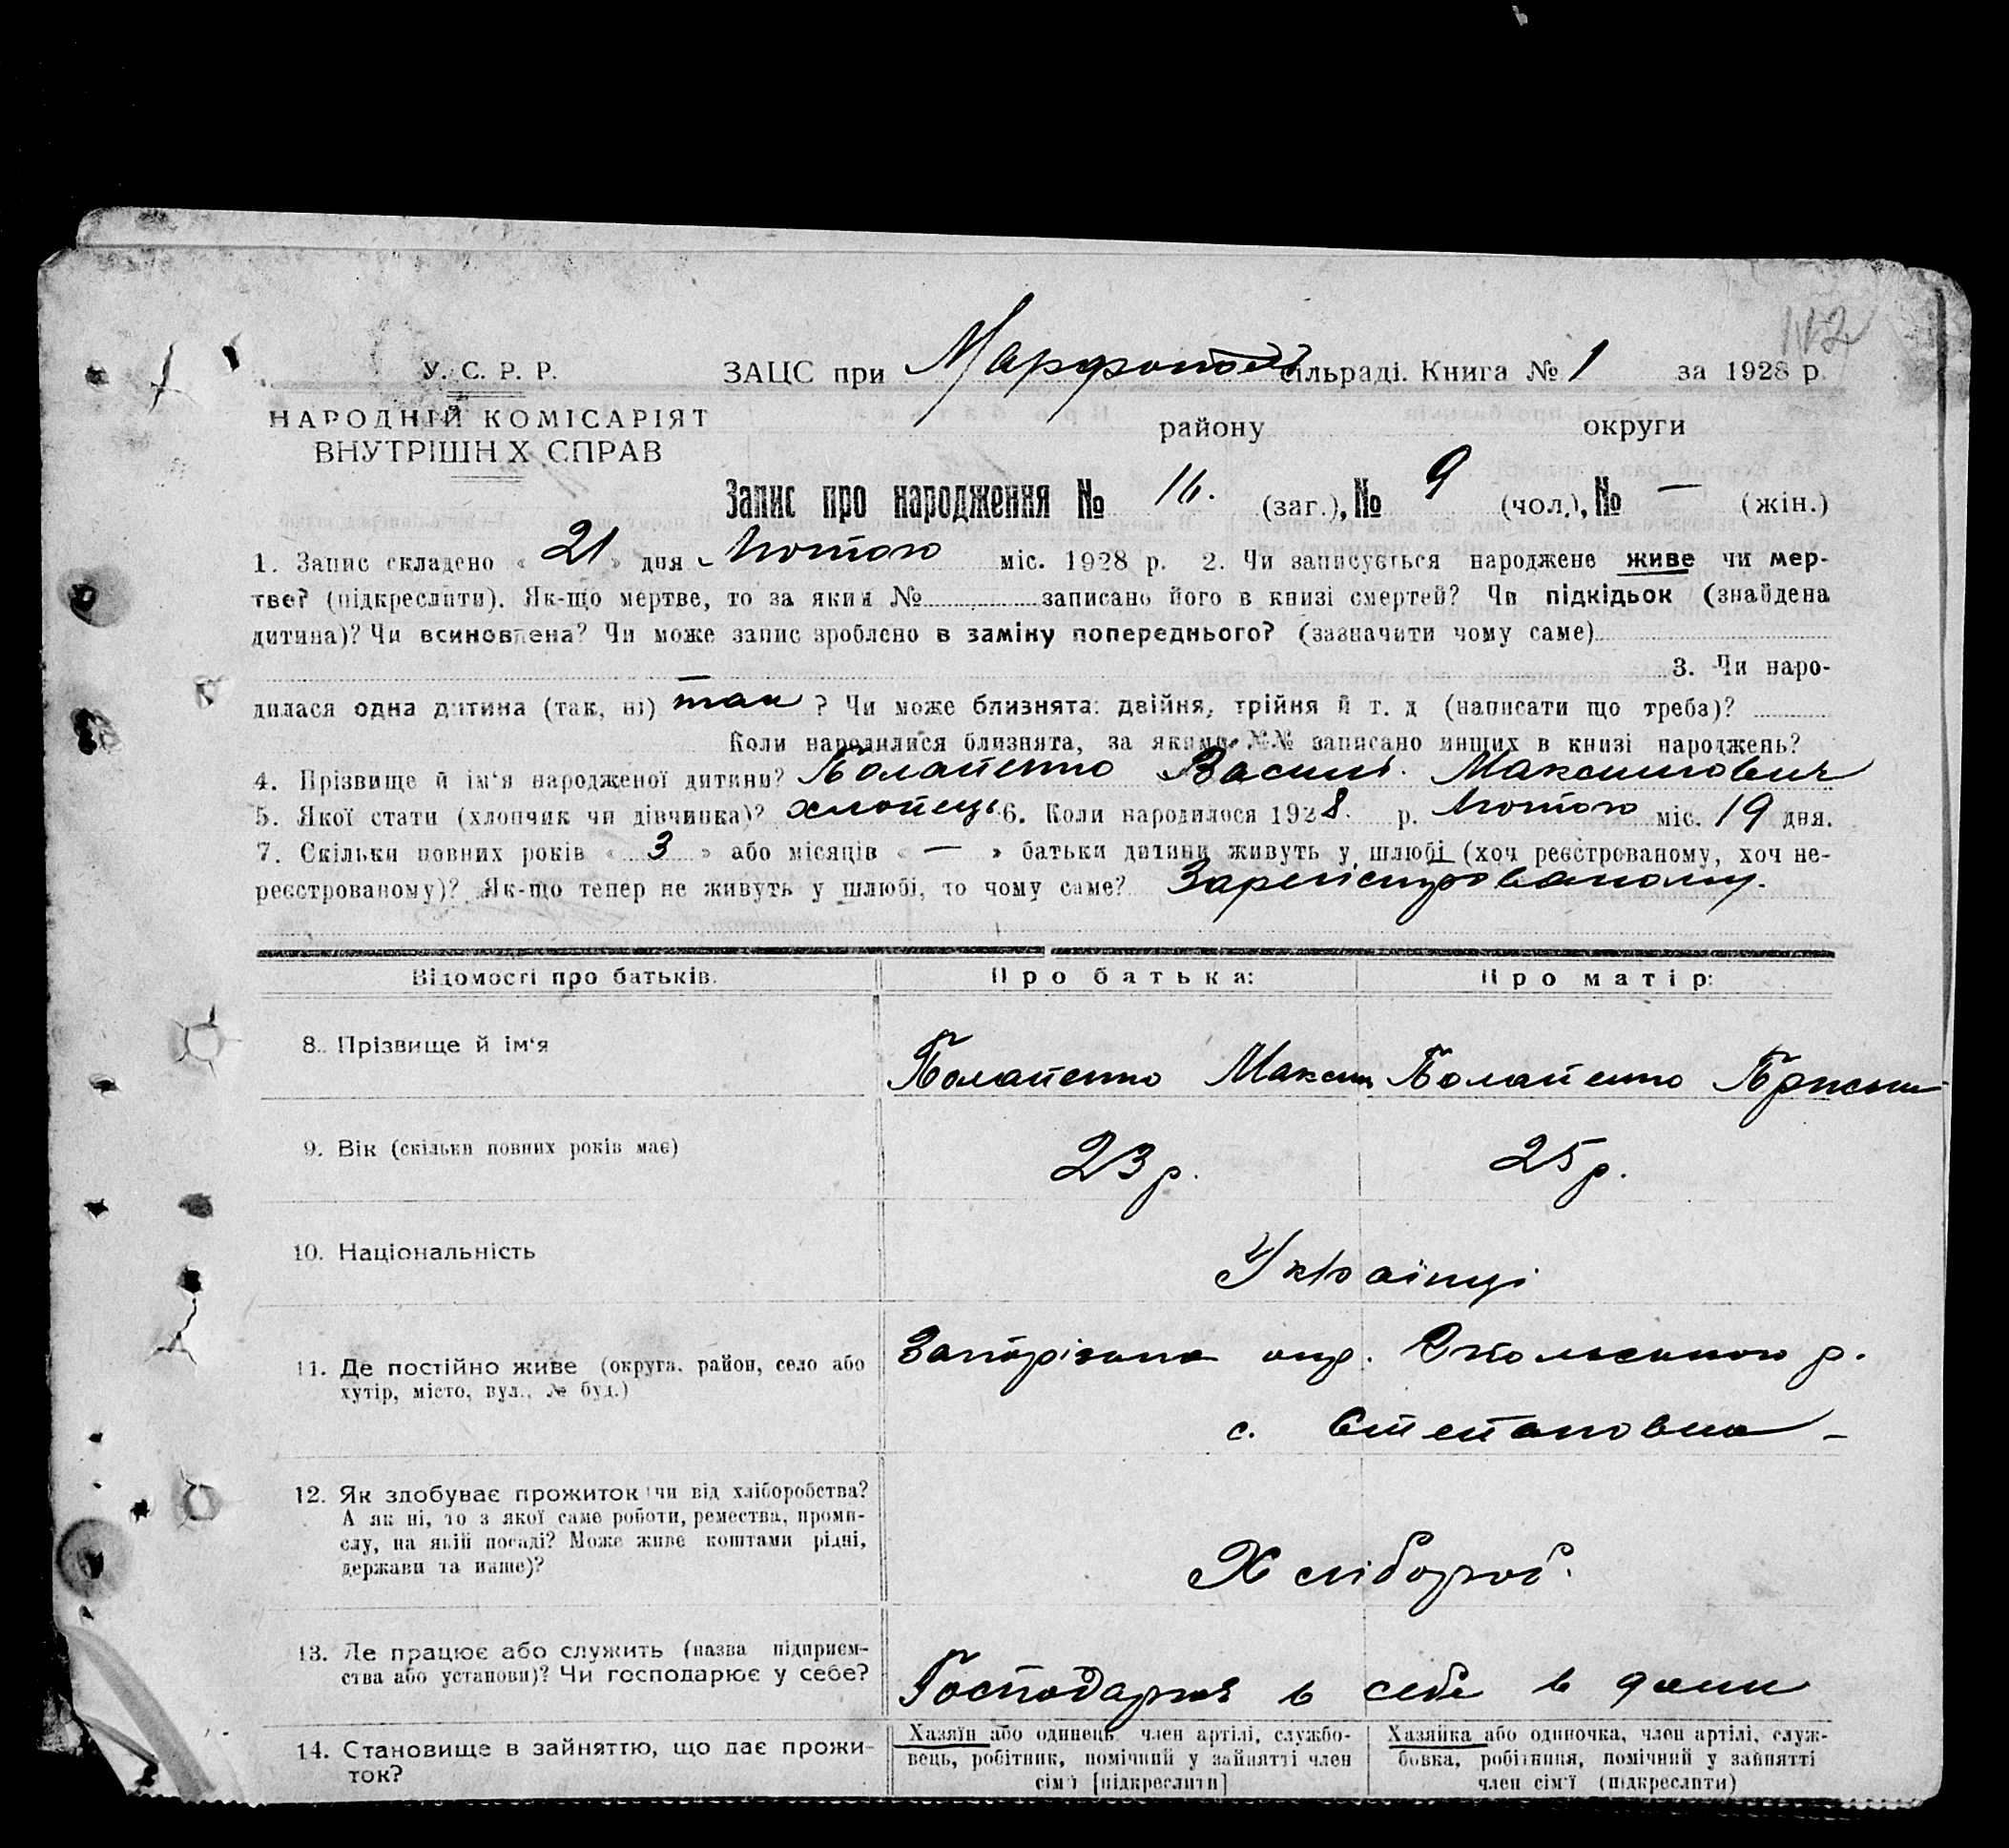 112
У. С. Р. Р.
НАРОДНІЙ КОМІСАРІЯТ
ВНУТРІШН Х СПРАВ
ЗАЦС при Марфопол сільраді. Книга № 1 за 1928 р.
району округи
Запис про народження № 16. (заг.), № 9 (чол.), № — (жін.)
1. Запис складено « 21 » дня Лютого міс. 1928 р. 2. Чи записується народжене живе чи мер-
тве? (підкреслити). Як-що мертве, то за яким № записано його в книзі смертей? Чи підкідьок (знайдена
дитина)? Чи всиновлена? Чи може запис зроблено в заміну попереднього? (зазначити чому саме)
3. Чи наро-
дилася одна дитина (так, ні) так ? Чи може близнята: двійня, трійня й т. д (написати що треба)?
Коли народилися близнята, за якими №№ записано инших в книзі народжень?
4. Прізвище й ім'я народженої дитини? Василь Максимович
5. Якої стати (хлопчик чи дівчинка)? хлопець 6. Коли народилося 1928. р. Лютого міс. 19 дня.
7. Скільки повних років « 3 » або місяців « — » батьки дитини живуть у шлюбі (хоч реєстрованому, хоч не-
реєстрованому)? Як-що тепер не живуть у шлюбі, то чому саме? Зареистрованому.
Відомості про батьків. Про батька: Про матір:
8. Прізвище й ім'я Максим
9. Вік (скільки повних років має) 23 р. 25 р.
10. Національність Українці
11. Де постійно живе (округа, район, село або
хутір, місто, вул., № буд.)
Запоріська окр. р.
с. Степановка
12. Як здобуває прожиток чи від хліборобства?
А як ні, то з якої саме роботи, ремества, проми-
слу, на якій посаді? Може живе коштами рідні,
держави та инше)?
Хлібороб.
13. Де працює або служить (назва підприєм-
ства або установи)? Чи господарює у себе?
Господарює в себе в дома
14. Становище в зайняттю, що дає прожи-
ток?
Хазяїн або одинець, член артілі, службо-
вець, робітник, помічний у зайнятті член
сім'ї [підкреслити]
Хазяйка або одиночка, член артілі, служ-
бовка, робітниця, помічний у зайнятті
член сім'ї (підкреслити)